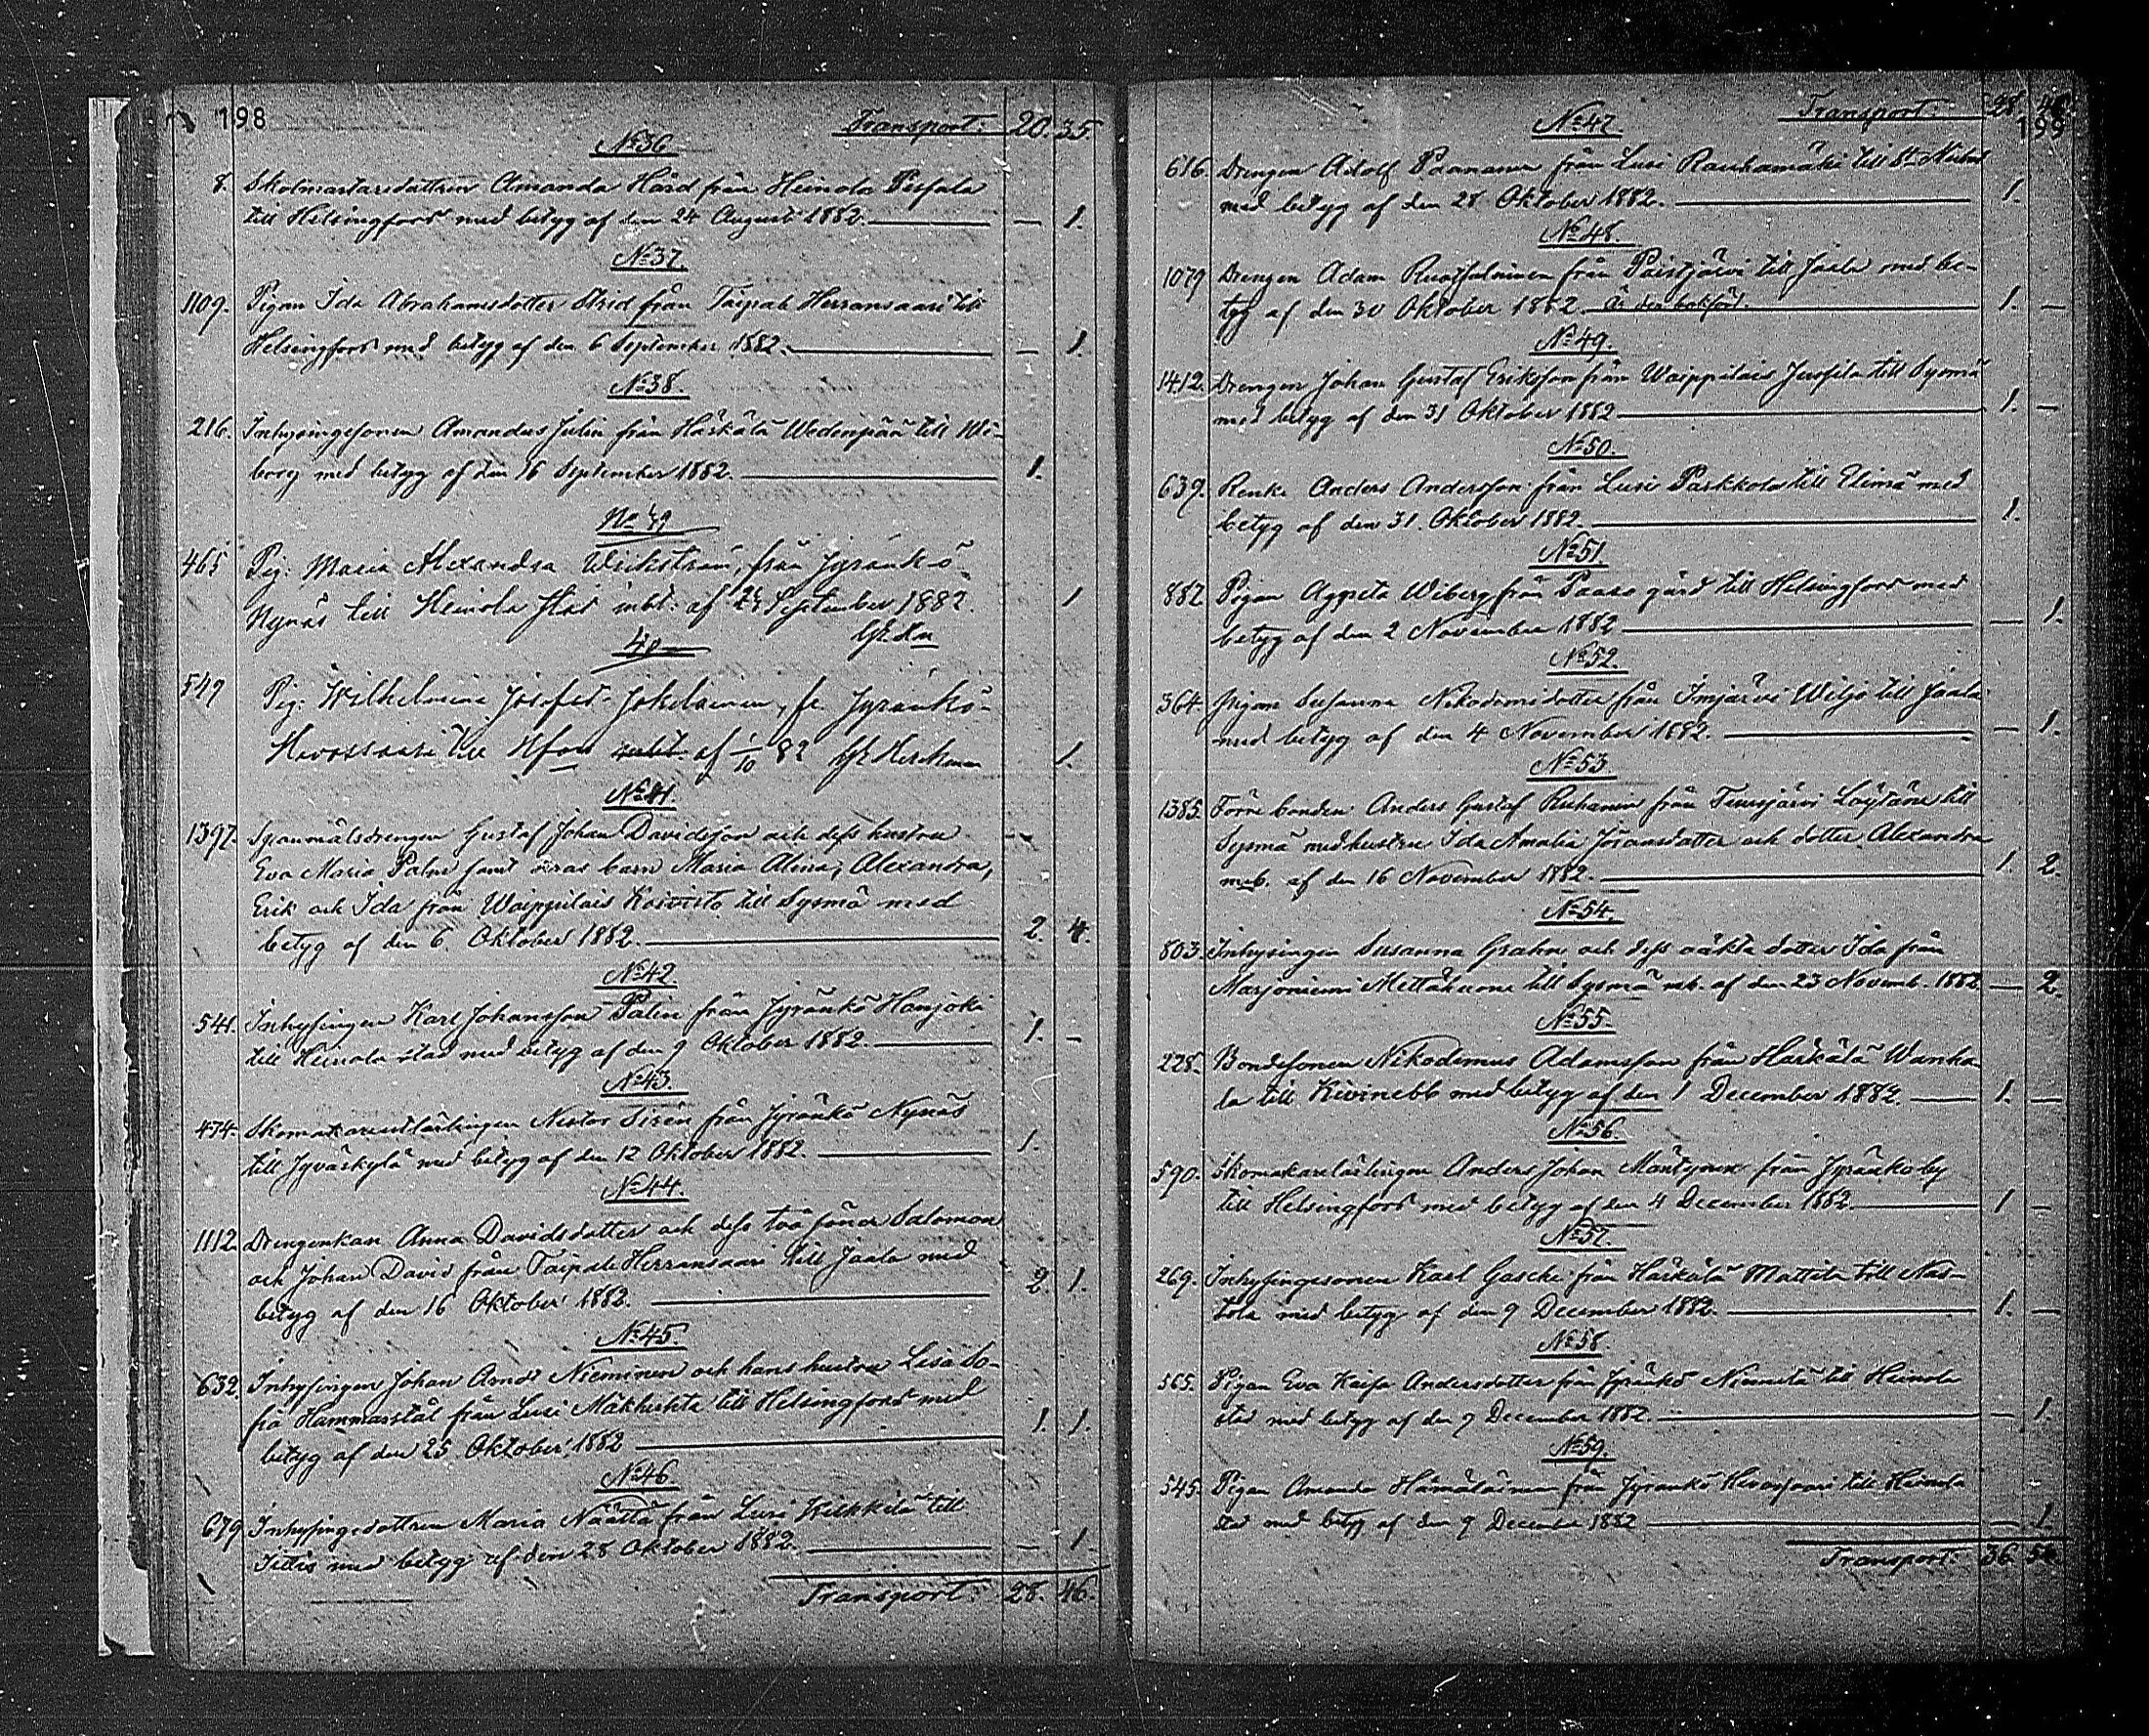 198 Transport: 20. 35
No 36.
8. Skolmästaredottren Amanda Hård från Heinola Pirfala
till Helsingfors med betyg af den 24 Augusti 1882. — 1.
No 37.
1109. Pigan Ida Abrahamsdotter Strid från Taipale Herransaari till
Helsingfors med betyg af den 6 September 1882. — 1.
No 38.
216. Inhysingesonen Amandus Julin från Härkälä Wedenpää till Wi-
borg med betyg af den 16 September 1882. 1.
No 39
465 Pig: Maria Alexandra Wickström, från Jyränkö
Nynäs till Heinola stad mbt: af September 1882. 1
40
549 Pig: Wilhelmina Josefsd. Jokelainen, fr Jyränkö
till Hfors mbt. af 1/10 82 1.
No 41.
1397. Spanmålsdrengen Gustaf Johan Davidsson och dess hustru
Eva Maria Palm samt deras barn Maria Alina, Alexandra,
Erik och Ida från Waippilais Koivisto till Sysmä med
betyg af den 6. Oktober 1882. 2. 4.
No 42.
541. Inhysingen Karl Johansson Palin från Jyränkö Hanjoki
till Heinola stad med betyg af den 9 Oktober 1882. 1. -
No 43.
474. Skomakarelärlingen Nestor Sirén från Jyränkö Nynäs
till Jyväskylä med betyg af den 12 Oktober 1882. 1.
No 44.
1112. Drengenkan Anna Davidsdotter och dess två söner Salomon
och Johan David från Taipale Herransaari till Jaala med
betyg af den 16 Oktober 1882. 2. 1.
No 45.
632. Inhysingen Johan Arnd Nieminen och hans hustru Lisa So-
fia Hammarstål från Lusi Mäkhuhta till Helsingfors med
betyg af den 25 Oktober 1882 1. 1.
No 46.
679 Inhysingedottren Maria Näättä från Lusi Kukkila till
Iittis med betyg af den 28 Oktober 1882. — 1
Transport: 28. 46.
Transport: 28. 46.
199
No 47.
616. Drengen Adolf Paananen från Lusi Rauhamäki till St Michel
med betyg af den 28 Oktober 1882. 1.
No 48.
1079 Drengen Adam Ruotsalainen från Paistjärvi till Jaala med be-
tyg af den 30 Oktober 1882. 1. —
No 49.
1412. Drengen Johan Gustaf Eriksson från Waippilais Jussila till Sysmä
med betyg af den 31 Oktober 1882 1. —
No 50.
639. Renke Anders Andersson från Lusi Paskkola till Elimä med
betyg af den 31. Oktober 1882. 1.
No 51.
882 Pigan Aggneta Wiberg från Paaso gård till Helsingfors med
betyg af den 2 November 1882 — 1.
No 52.
364. Pigan Susanna Nikodemidotter från Imjärvi Wiljo till Jaala
med betyg af den 4 November 1882. — 1.
No 53.
1385. Förre bonden Anders Gustaf Ruhanen från Tunsjärvi Löytäne till
Sysmä med hustru Ida Amalia Jöransdotter och dotter Alexandra
mb. af den 16 November 1882. 1. 2.
No 54.
803. Inhysingen Susanna Grahn och dess oäkta dotter Ida från
Marjoniemi Mettäkuona till Sysmä mb. af den 23 Novemb. 1882 — 2.
No 55.
228. Bondesonen Nikodemus Adamsson från Härkälä Wanha-
la till Kivinebb med betyg af den 1 December 1882. 1. —
No 56.
590. Skomakarelärlingen Anders Johan Mäntynen från Jyränkö by
till Helsingfors med betyg af den 4 December 1882. 1 —
No 57.
269. Inhysingesonen Karl Gasche från Härkälä Mattila till Nas-
tola med betyg af den 9 December 1882. 1. —
No 58
565. Pigan Eva Kaisa Andersdotter från Jyränkö Niemelä till Heinola
stad med betyg af den 9 December 1882. — 1.
No 59.
545. Pigan Amanda Hämäläinen från Jyränkö Hevossaari till Heinola
stad med betyg af den 9 December 1882 — 1.
Transport: 36. 54.